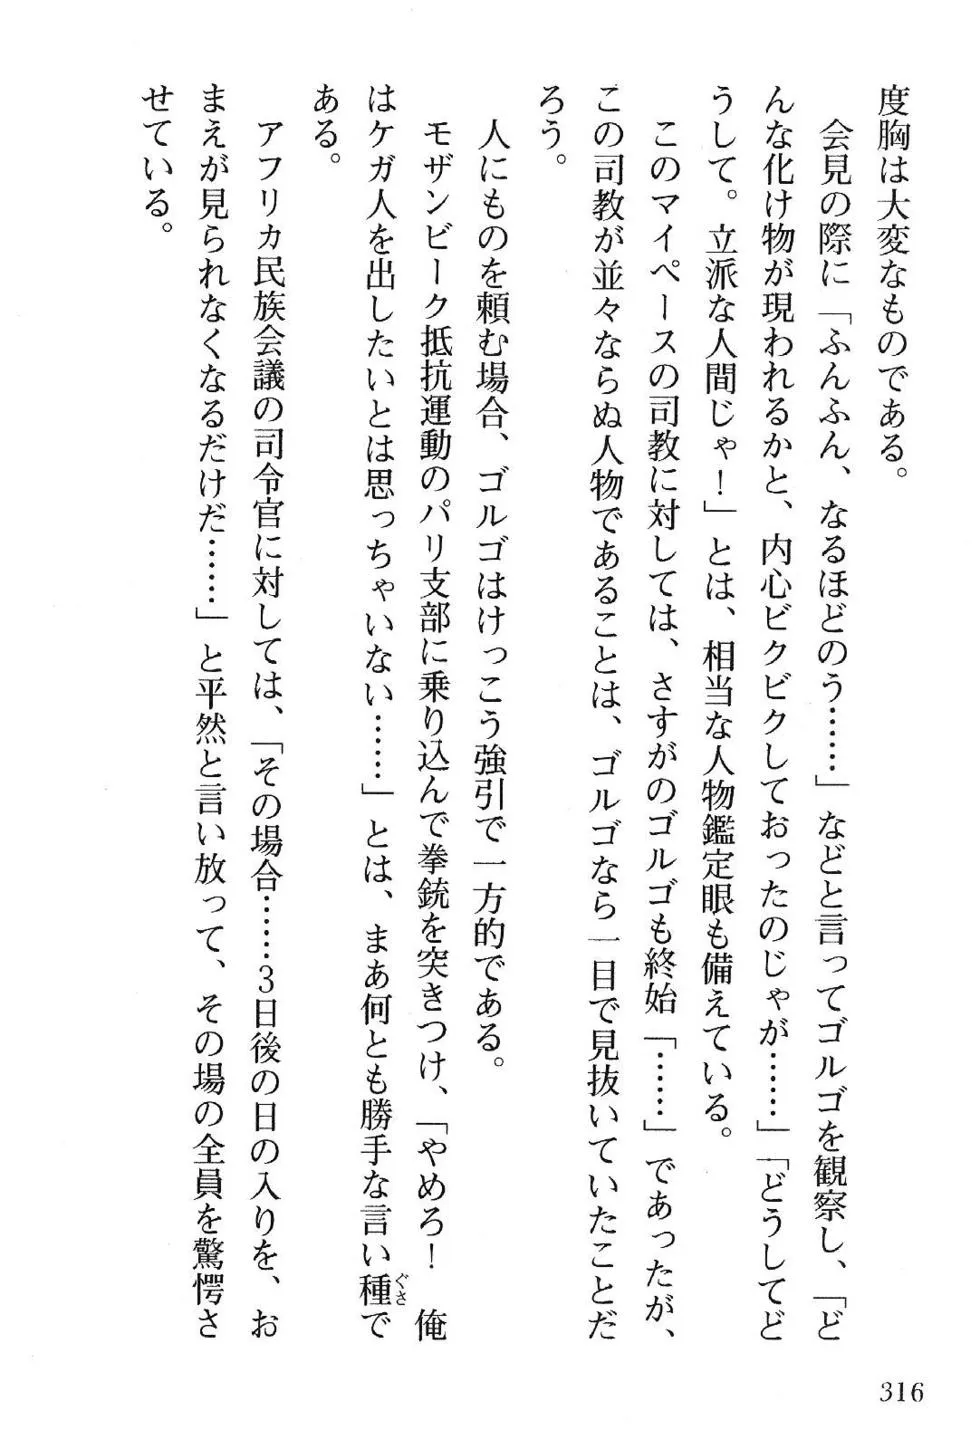 度胸は大変なものである。
　会見の際に「ふんふん、なるほどのう……」などと言ってゴルゴを観察し、「ど
んな化け物が現われるかと、内心ビクビクしておったのじゃが……」「どうしてど
うして。立派な人間じゃ！」とは、相当な人物鑑定眼も備えている。
　このマイペースの司教に対しては、さすがのゴルゴも終始「……」であったが、
この司教が並々ならぬ人物であることは、ゴルゴなら一目で見抜いていたことだ
ろう。
　人にものを頼む場合、ゴルゴはけっこう強引で一方的である。
　モザンビーク抵抗運動のパリ支部に乗り込んで拳銃を突きつけ、「やめろ！　俺
はケガ人を出したいとは思っちゃいない……」とは、まあ何とも勝手な言い種ぐさで
ある。
　アフリカ民族会議の司令官に対しては、「その場合……3日後の日の入りを、お
まえが見られなくなるだけだ……」と平然と言い放って、その場の全員を驚愕さ
せている。
316